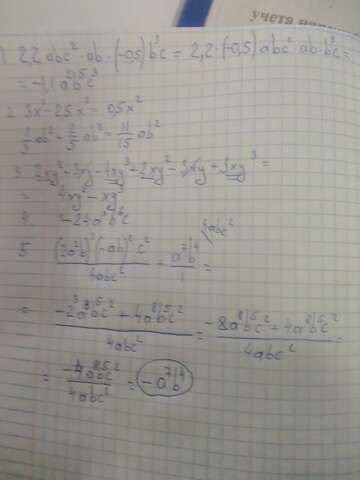 учета
1 2,2abc² · ab · (-0,5)b³c = 2,2 · (-0,5)abc² · ab · b³c =
= -1,1a²b⁵c³
2. 3x² - 2,5x² = 0,5x²
1/3 ab² + 2/5 ab² = 11/15 ab²
3. 2xy² + 3xy - 4xy³ + 2xy² - 3xy + 3xy³ =
= 4xy² - xy³
4. -24a³b⁶c
5. (2a²b)³(-ab)²c² / 4abc² - a⁷b⁴ / 1 \4abc² =
= -2³a⁸b⁵c² + 4a⁸b⁵c² / 4abc² = -8a⁸b⁵c² + 4a⁸b⁵c² / 4abc² =
= -4a⁸b⁵c² / 4abc² = -a⁷b⁴